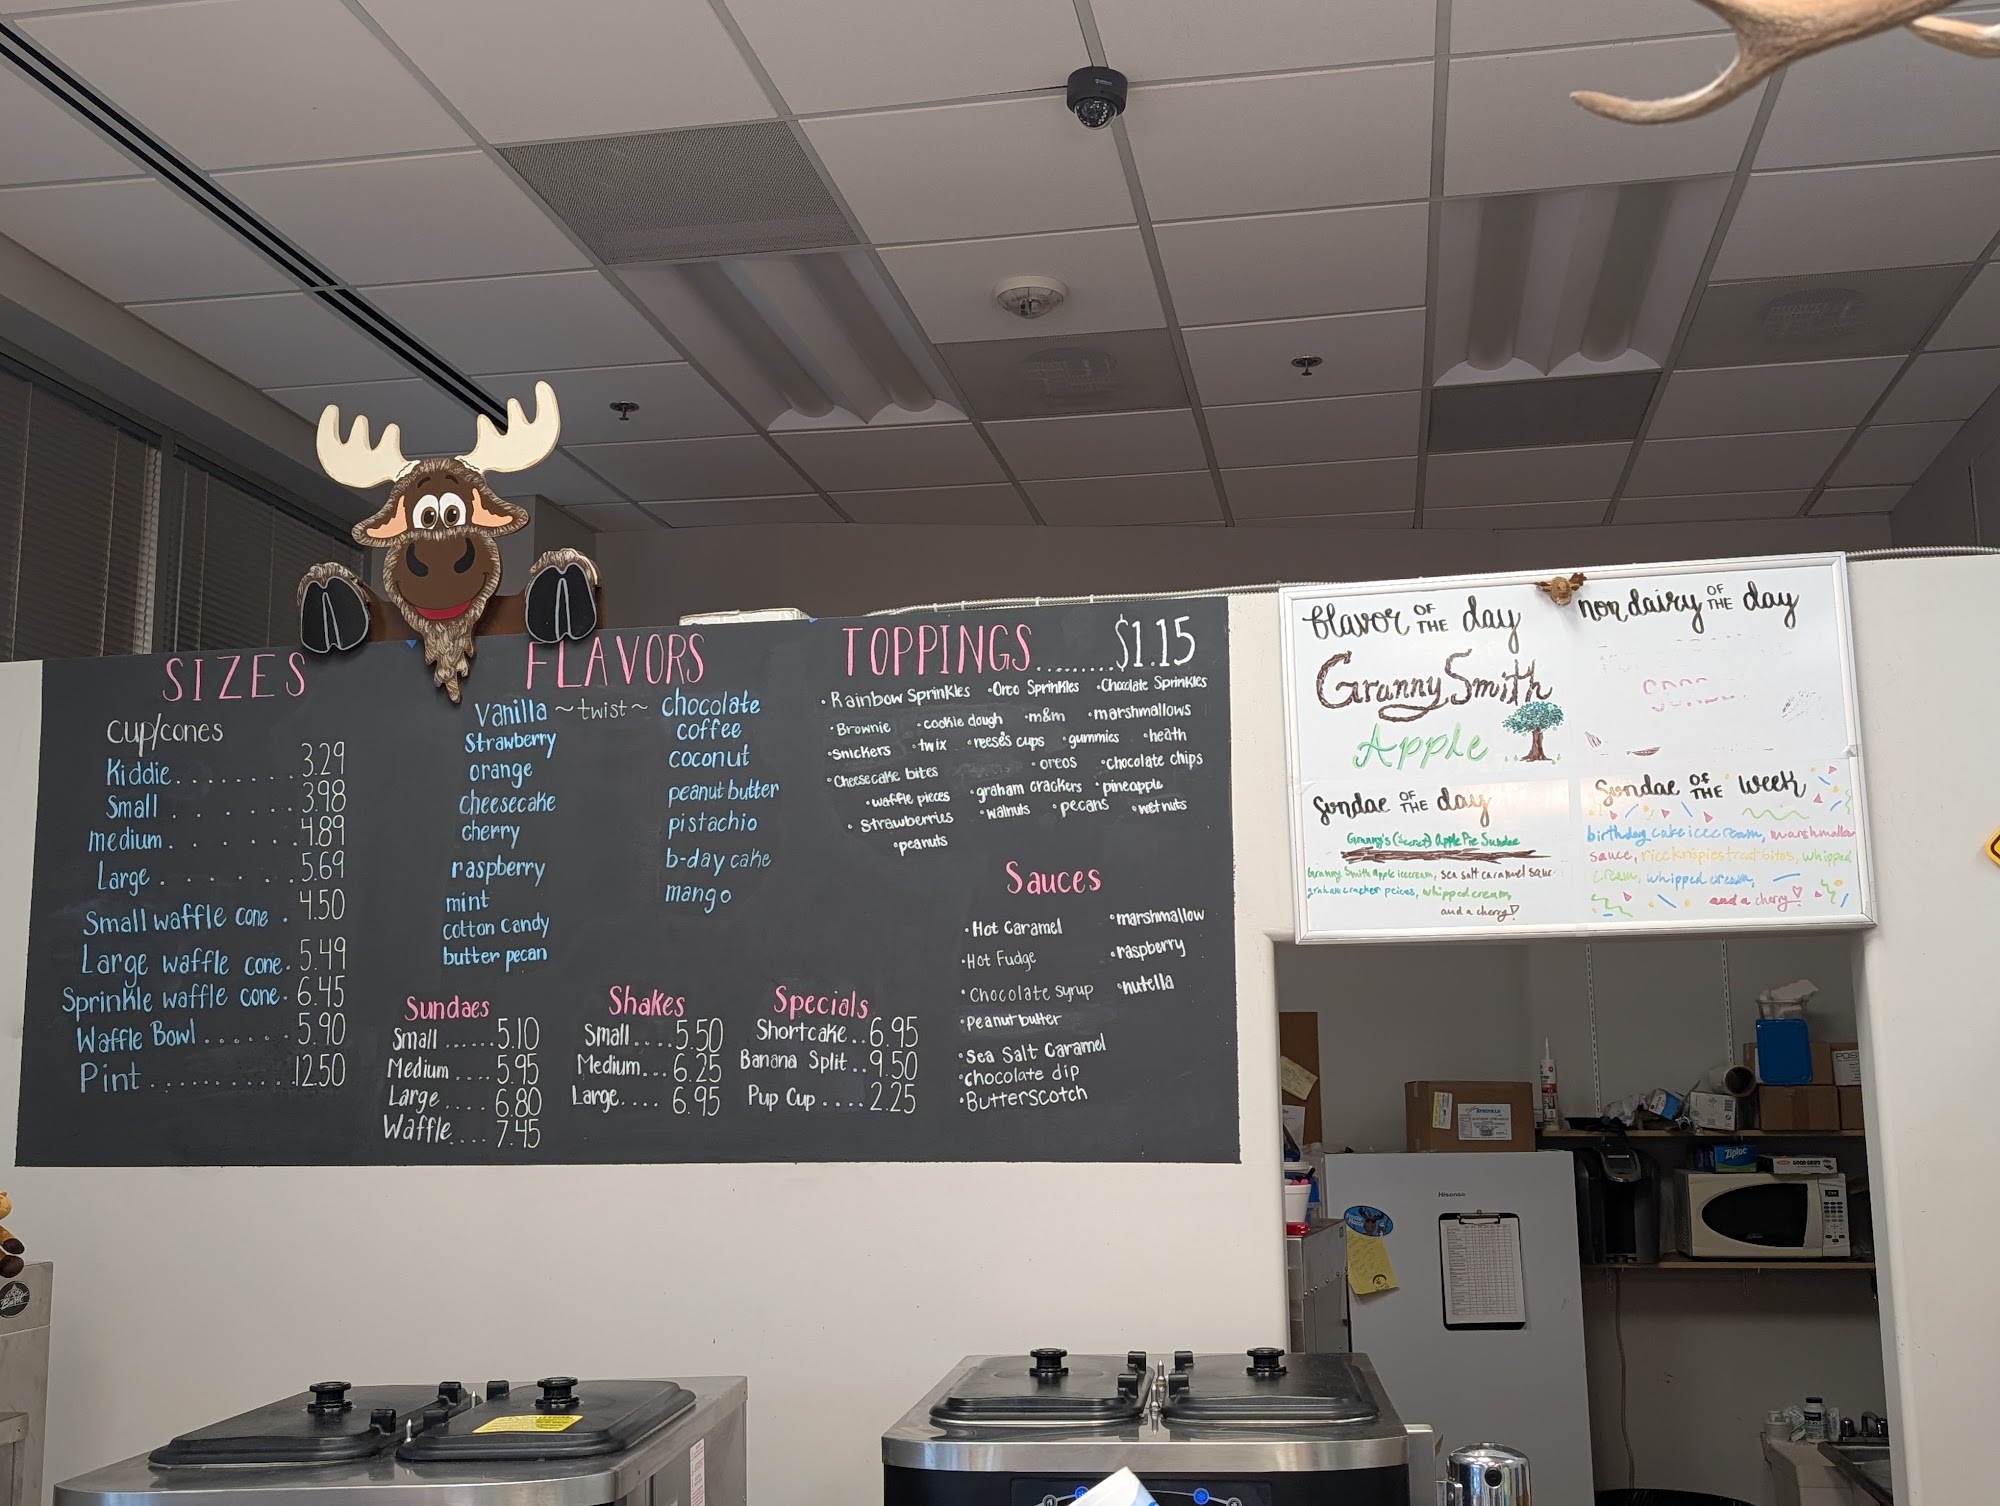 SIZES
cup/cones
Kiddie........3.29
Small.......3.98
medium.......4.89
Large.......5.69
Small waffle cone.4.50
Large waffle cone.5.49
Sprinkle waffle cone.6.45
Waffle Bowl......5.90
Pint...........12.50
FLAVORS
Vanilla ~twist~ chocolate
Strawberry
orange
cheesecake
cherry
raspberry
mint
cotton candy
butter pecan
coffee
coconut
peanut butter
pistachio
b-day cake
mango
Sundaes
Small......5.10
Medium....5.95
Large....6.80
Waffle....7.45
Shakes
Small....5.50
Medium...6.25
Large....6.95
Specials
Shortcake..6.95
Banana Split..9.50
Pup Cup....2.25
TOPPINGS........$1.15
•Rainbow Sprinkles •Oreo Sprinkles •Chocolate Sprinkles
•Brownie •cookie dough •m&m •marshmallows
•Snickers •twix •reese's cups •gummies •heath
•Cheesecake bites •oreos •chocolate chips
•waffle pieces •graham crackers •pineapple
•Strawberries •walnuts •pecans •wet nuts
•peanuts
Sauces
•Hot Caramel
•Hot Fudge
•Chocolate syrup
•Peanut butter
•Sea Salt Caramel
•chocolate dip
•Butterscotch
•marshmallow
•raspberry
•nutella
flavor OF THE day
Granny Smith
Apple
non dairy OF THE day
Sundae OF THE day
Granny's (secret) Apple Pie Sundae
Granny Smith apple icecream, sea salt caramel sauce
graham cracker peices, whipped cream,
and a cherry!
Sundae OF THE Week
birthday cake icecream, marshmallow
sauce, rice krispies treat bites, whipped
cream, whipped cream,
and a cherry!
Hisense
Ziploc